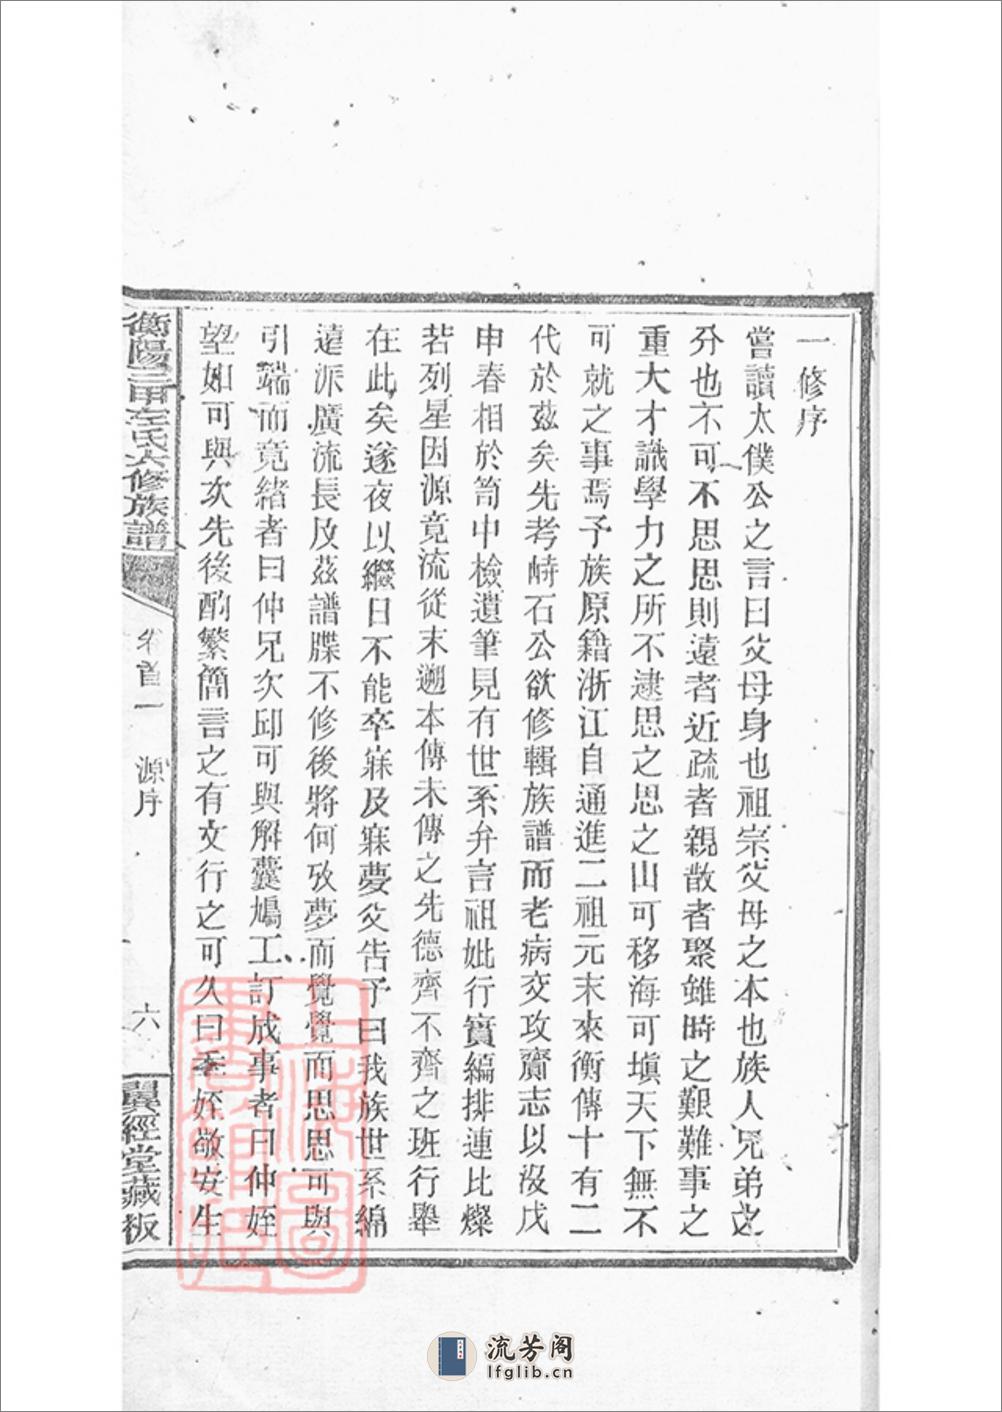 一修序
嘗讀太僕公之言曰父母身也祖宗父母之本也族人兄弟之
分也不可不思思則遠者近疏者親散者聚雖時之艱難事之
重大才識學力之所不逮思之思之山可移海可塡天下無不
可就之事焉予族原籍浙江自通進二祖元末來衡傳十有二
代於茲矣先考峙石公欲修輯族譜而老病交攻賫志以沒戊
申春相於笥中檢遺筆見有世系弁言祖妣行實編排連比燦
若列星因源竟流從末遡本傳未傳之先德齊不齊之班行舉
在此矣遂夜以繼日不能卒寐及寐夢父告予曰我族世系綿
遠派廣流長及茲譜牒不修後將何攷夢而覺覺而思思可與
引端而竟緒者曰仲兄次邱可與解囊鳩工訂成事者曰仲姪
望如可與次先後酌繁簡言之有文行之可久曰季姪敬安生
衡陽三甲左氏六修族譜
卷首一 源序
六
翼經堂藏板
上海圖書館藏
流芳阁
lfglib.cn